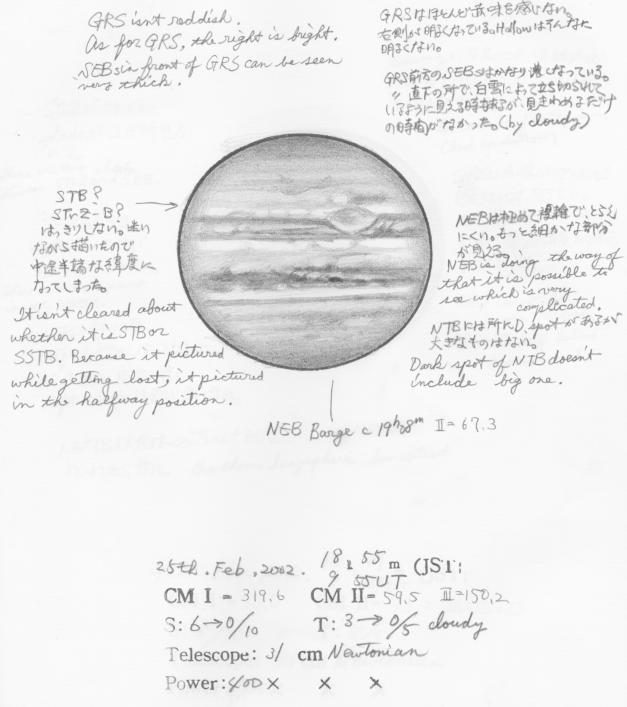 GRS isn't reddish.
As for GRS, the right is bright.
SEBs in front of GRS can be seen
very thick.
GRSはほとんど赤味を感じない。
右側が明るくなっている。Hollowはそんなに
明るくない。
GRS前方のSEBsはかなり濃くなっている。
〃 直下の所で、白雲によって立ち切られて
いるように見える時もあるが、見きわめるだけ
の時間がなかった。(by cloudy)
STB?
STrZ-B?
はっきりしない。迷い
ながら描いたので
中途半端な緯度に
なってしまった。
It isn't cleared about
whether it is STB or
SSTB. Because it pictured
while getting lost, it pictured
in the halfway position.
NEBは極めて複雑で、とらえ
にくい。もっと細かな部分
が見える。
NEB is doing the way of
that it is possible to
see which is very
complicated.
NTBには所々D.spotがあるが
大きなものはない。
Dark spot of NTB doesn't
include big one.
NEB Barge c 19h08m II=67.3
25th. Feb, 2002. 18h 55m (JST)
9 55UT
CM I = 319.6 CM II= 59.5 III=150.2
S: 6→0/10 T: 3→0/5 cloudy
Telescope: 31 cm Newtonian
Power: 400× × ×